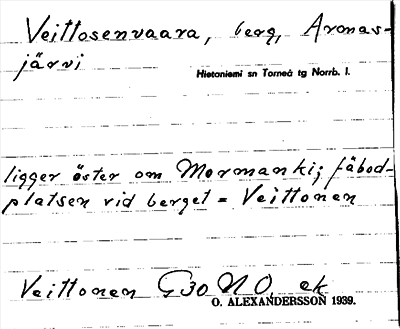 Veittosenvaara, berg, Aronas-
järvi
Hietaniemi sn Torneå tg Norrb. l.
ligger öster om Mormankij fäbod-
platsen vid berget = Veittonen
Veittonen G30 NO. ek
O. ALEXANDERSSON 1939.